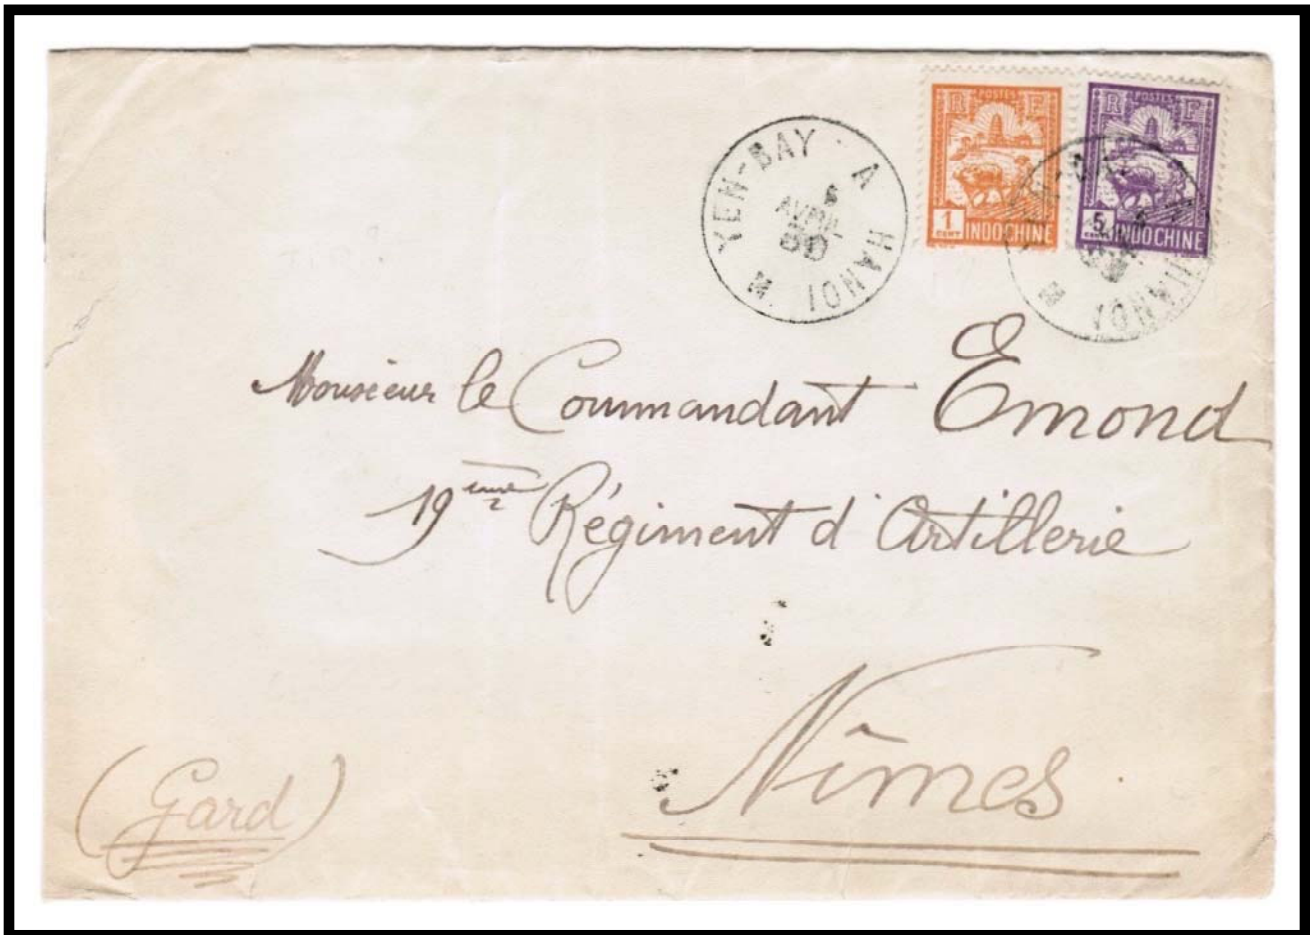 YEN-BAY A HANOI
AVRIL
30
POSTES
R F
1
CENT
INDOCHINE
POSTES
R F
5
INDOCHINE
HANOI
Monsieur le Commandant Emond
19ème Régiment d'Artillerie
Nîmes
(Gard)